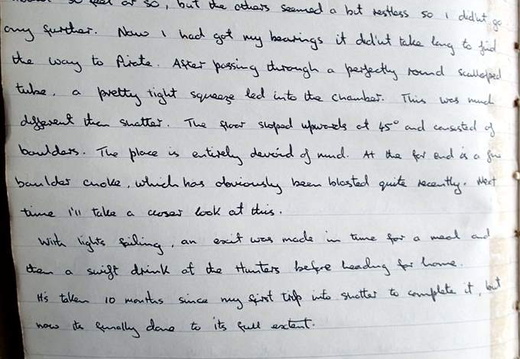 so, but the others seemed a but restless so I didn't go
any further. Now I had got my bearings it didn't take long to find
the way to Pirate. After passing through a perfectly round scalloped
tube, a pretty tight squeeze led into the chamber. This was much
different than Shatter. The floor sloped upwards at 45° and consisted of
boulders. The place is entirely devoid of mud. At the far end is a
boulder choke, which has obviously been blasted quite recently. Next
time I'll take a closer look at this.
With lights failing, an exit was made in time for a meal and
then a swift drink at the Hunters before heading for home.
It's taken 10 months since my first trip into Shatter to complete it, but
now its finally done to its full extent.